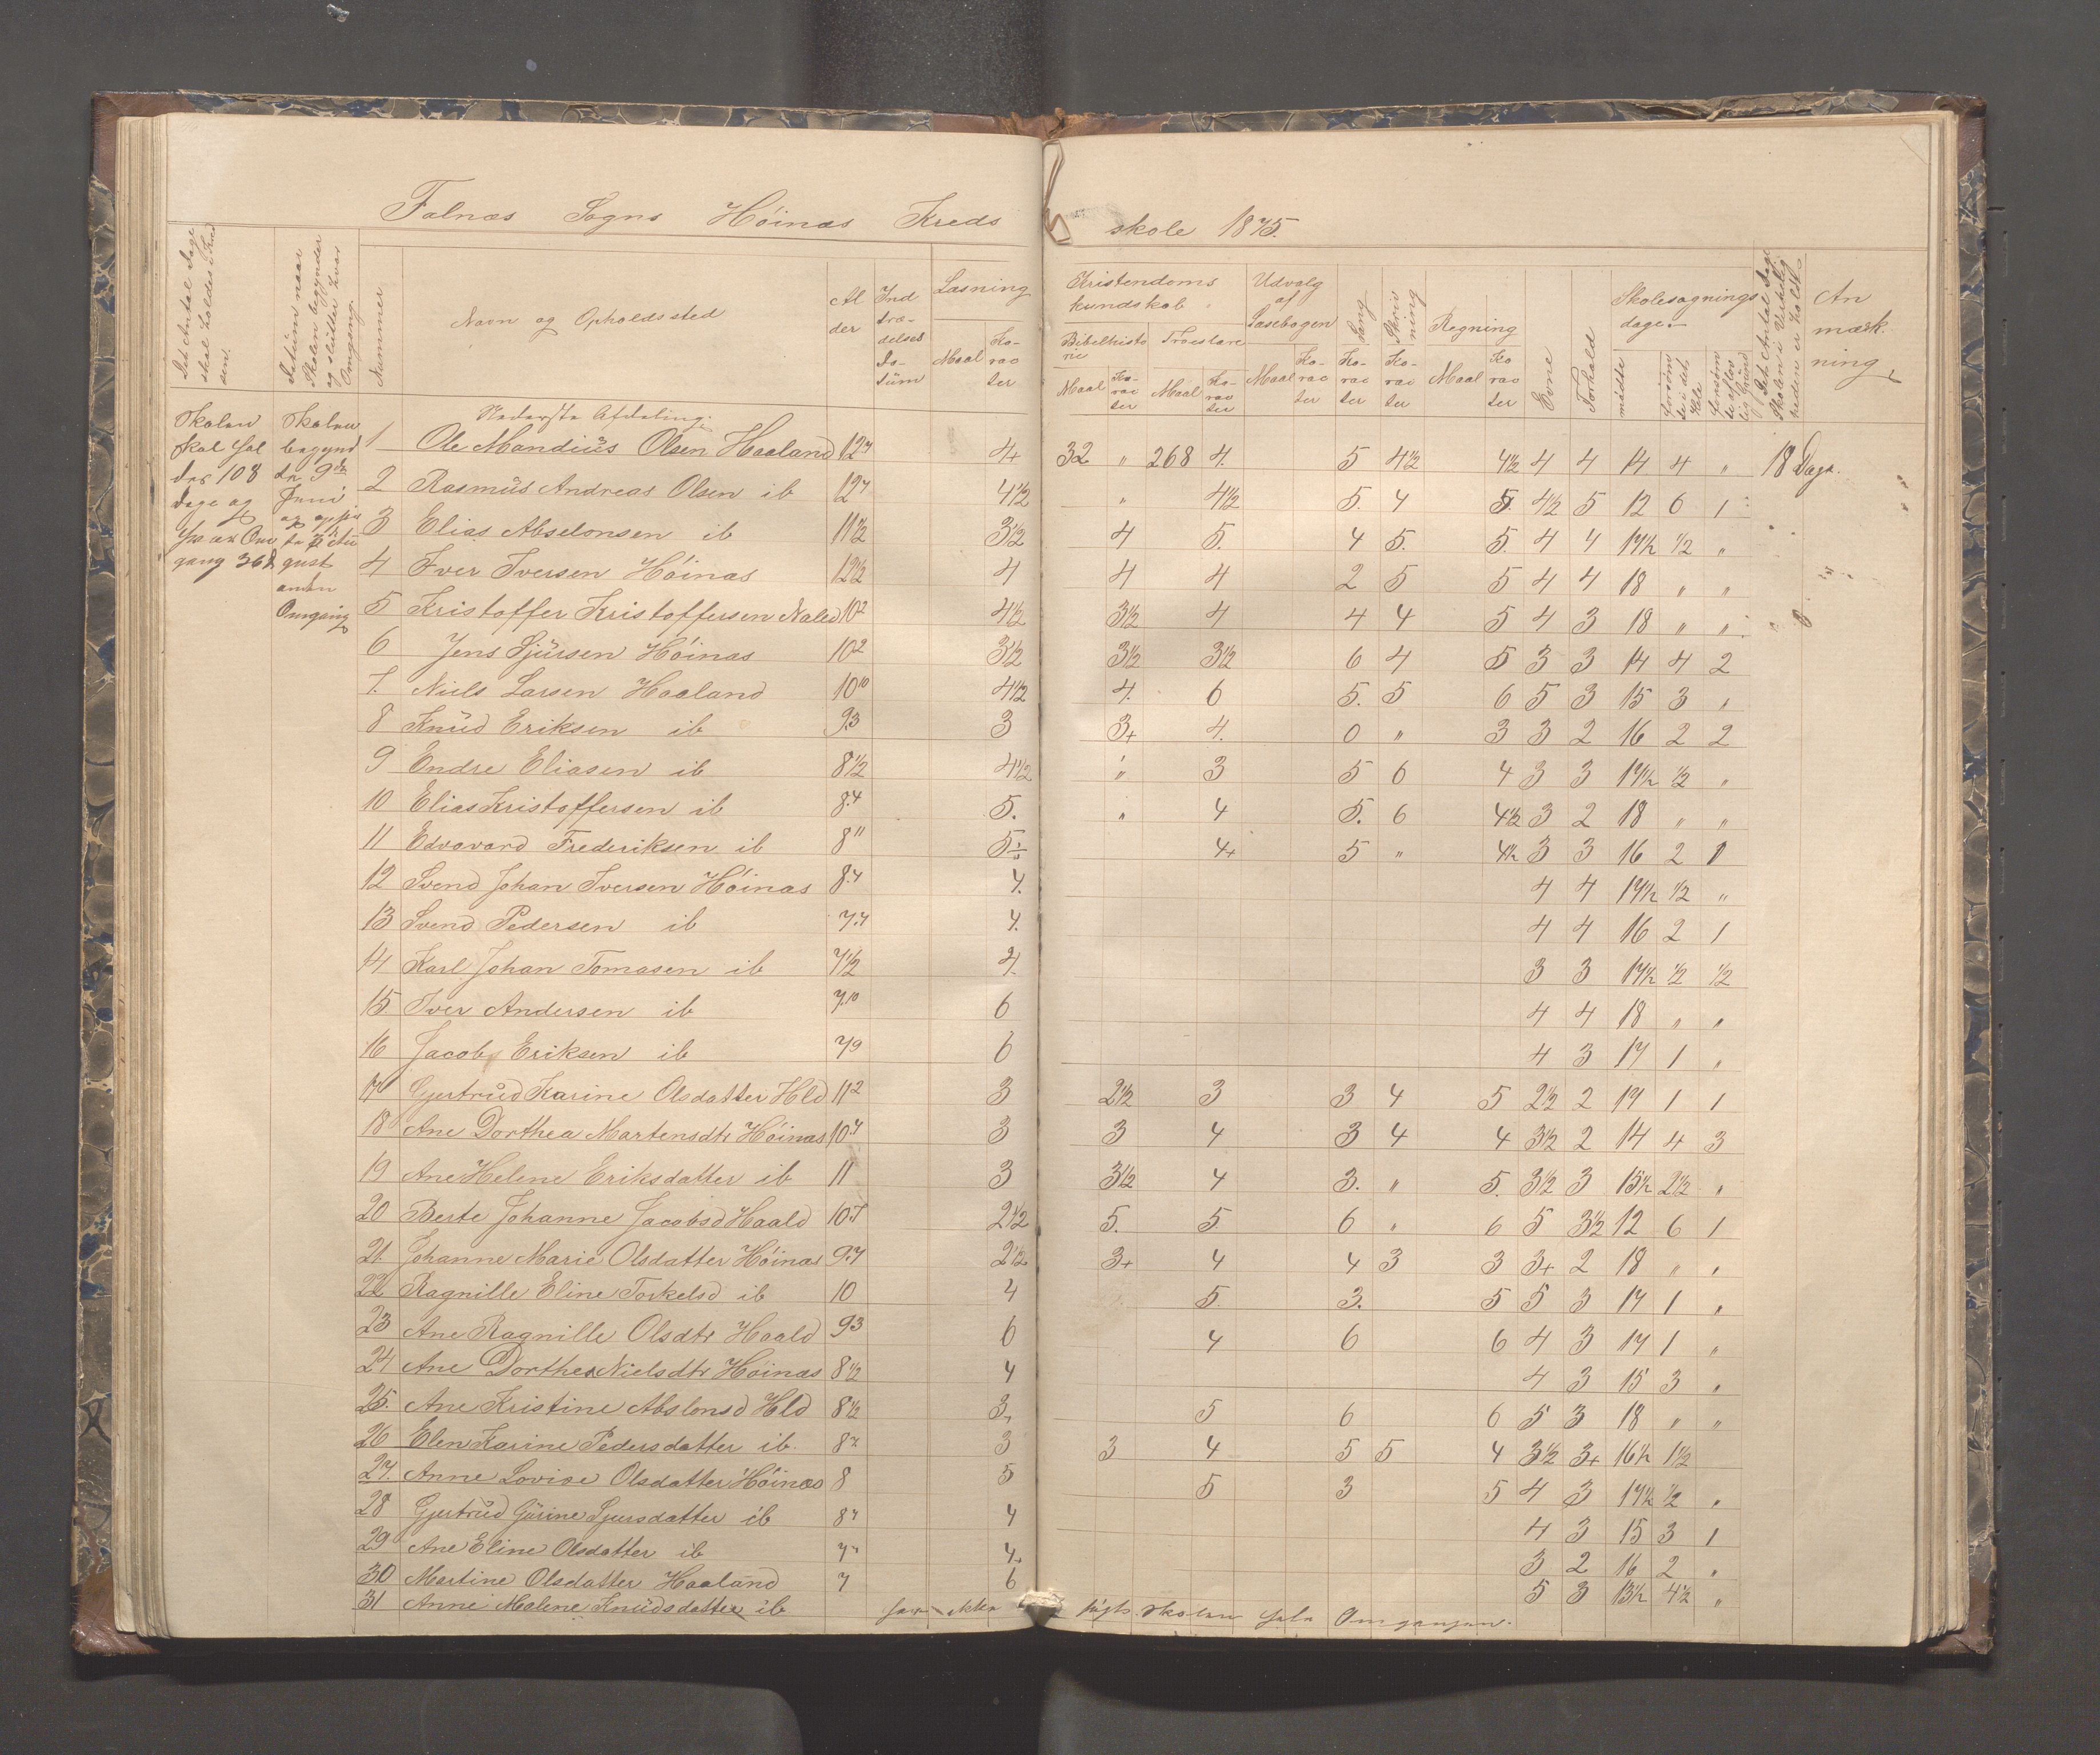 Falnæs Sogns Höinæs Kreds skole 1875.
Det Antal Dage skal holdes i Kredsen.
Datüm naar Skolen begynder og slutter hver Omgang.
Nummer
Navn og Opholdssted
Al der
Ind træ- delses Da- tüm
Læsning
Maal
Ka- rac ter
Kristendoms kundskab
Bibelhisto rie
Troeslære
Maal Ka- rac ter Maal Ka- rac ter
Udvalg af Læsebogen
Maal Ka- rac ter
Sang
Ka- rac ter
Skriv ning
Ka- rac ter
Regning
Maal Ka rac ter
Evne
Forhold
Skolesøgnings dage.
mødte
forsøm te i det Hele
forsøm te af lov lig Grund
Det Antal Dage Skolen i Virkelig heden er holdt
An mærk. ning
Skolen skal hol des 108 Dage og
gang 36 D
Skolen begynd der 9de Juni
gust anden Omgang
Nederste Afdeling.
1 Ole Mandiüs Olsen Haaland 12 7 4+ 32 " 268 4. 5 4½ 4½ 4 4 14 4 " 18 Dage.
2 Rasmüs Andreas Olsen ib 12 7 4½ " 4½ 5. 4 5. 4½ 5 12 6 1
3 Elias Abselonsen ib 11½ 3½ 4 5. 4 5. 5. 4 4 17½ ½ "
4 Iver Iversen Höinæs 12½ 4 4 4 2 5 5 4 4 18 " "
5 Kristoffer Kristoffersen Haled 10 2 4½ 3½ 4 4 4 5 4 3 18 " "
6 Jens Sjürsen Höinæs 10 2 3½ 3½ 3½ 6 4 5 3 3 14 4 2
7. Niels Larsen Haaland 10 10 4½ 4. 6 5. 5 6 5 3 15 3 "
8 Knüd Eriksen ib 9.3 3 3+ 4. 0 " 3 3 2 16 2 2
9 Endre Eliasen ib 8½ 4½ " 3 5 6 4 3 3 17½ ½ "
10 Elias Kristoffersen ib 8.4 5. " 4 5. 6 4½ 3 2 18 " "
11 Edvavard Frederiksen ib 8 11 5 4+ 5 " 4½ 3 3 16 2 1
12 Svend Johan Iversen Höinæs 8.4 4. 4 4 17½ ½ "
13 Svend Pedersen ib 7.7 4. 4 4 16 2 1
14 Karl Johan Tomasen ib 7½ 4. 3 3 17½ ½ ½
15 Iver Andersen ib 7.10 6 4 4 18 " "
16 Jacob Eriksen ib 7 9 6 4 3 17 1 "
17 Gjertrüd Karine Olsdatter Hld 11 2 3 2½ 3 3 4 5 2½ 2 17 1 1
18 Ane Dorthea Martensdtr Höinæs 10 7 3 3 4 3 4 4 3½ 2 14 4 3
19 Ane Helene Eriksdatter ib 11 3 3½ 4 3. " 5. 3½ 3 15½ 2½ "
20 Berte Johanne Jacobsd Haald 10.5 2½ 5. 5 6 " 6 5 3½ 12 6 1
21. Johanne Marie Olsdatter Höinæs 9.7 2½ 3+ 4 4 3 3 3+ 2 18 " "
22 Ragnille Eline Torkelsd ib 10 4 5. 3. 5 5 3 17 1 "
23 Ane Ragnille Olsdtr Haald 9.3 6 4 6 6 4 3 17 1 "
24 Ane Dorthea Nielsdtr Höinæs 8½ 4 4 3 15 3 "
25. Ane Kristine Abslonsd Hld 8½ 3+ 5 6 6 5 3 18 " "
26 Elen Karine Pedersdatter ib. 8 7 3 3 4 5 5 4 3½ 3+ 16½ 1½
27. Anne Lovise Olsdatter Höinæs 8 5 5 3 5 4 3 17½ ½ "
28 Gjertrüd Gürine Sjursdatter ib 8 7 4 4 3 15 3 1
29 Ane Eline Olsdatter ib 7 7 4+ 3 2 16 2 "
30 Martine Olsdatter Haaland 7 6 5 3 13½ 4½ "
31 Anne Malene Knüdsdatter ib har ikke søgt Skolen hele Omgangen.